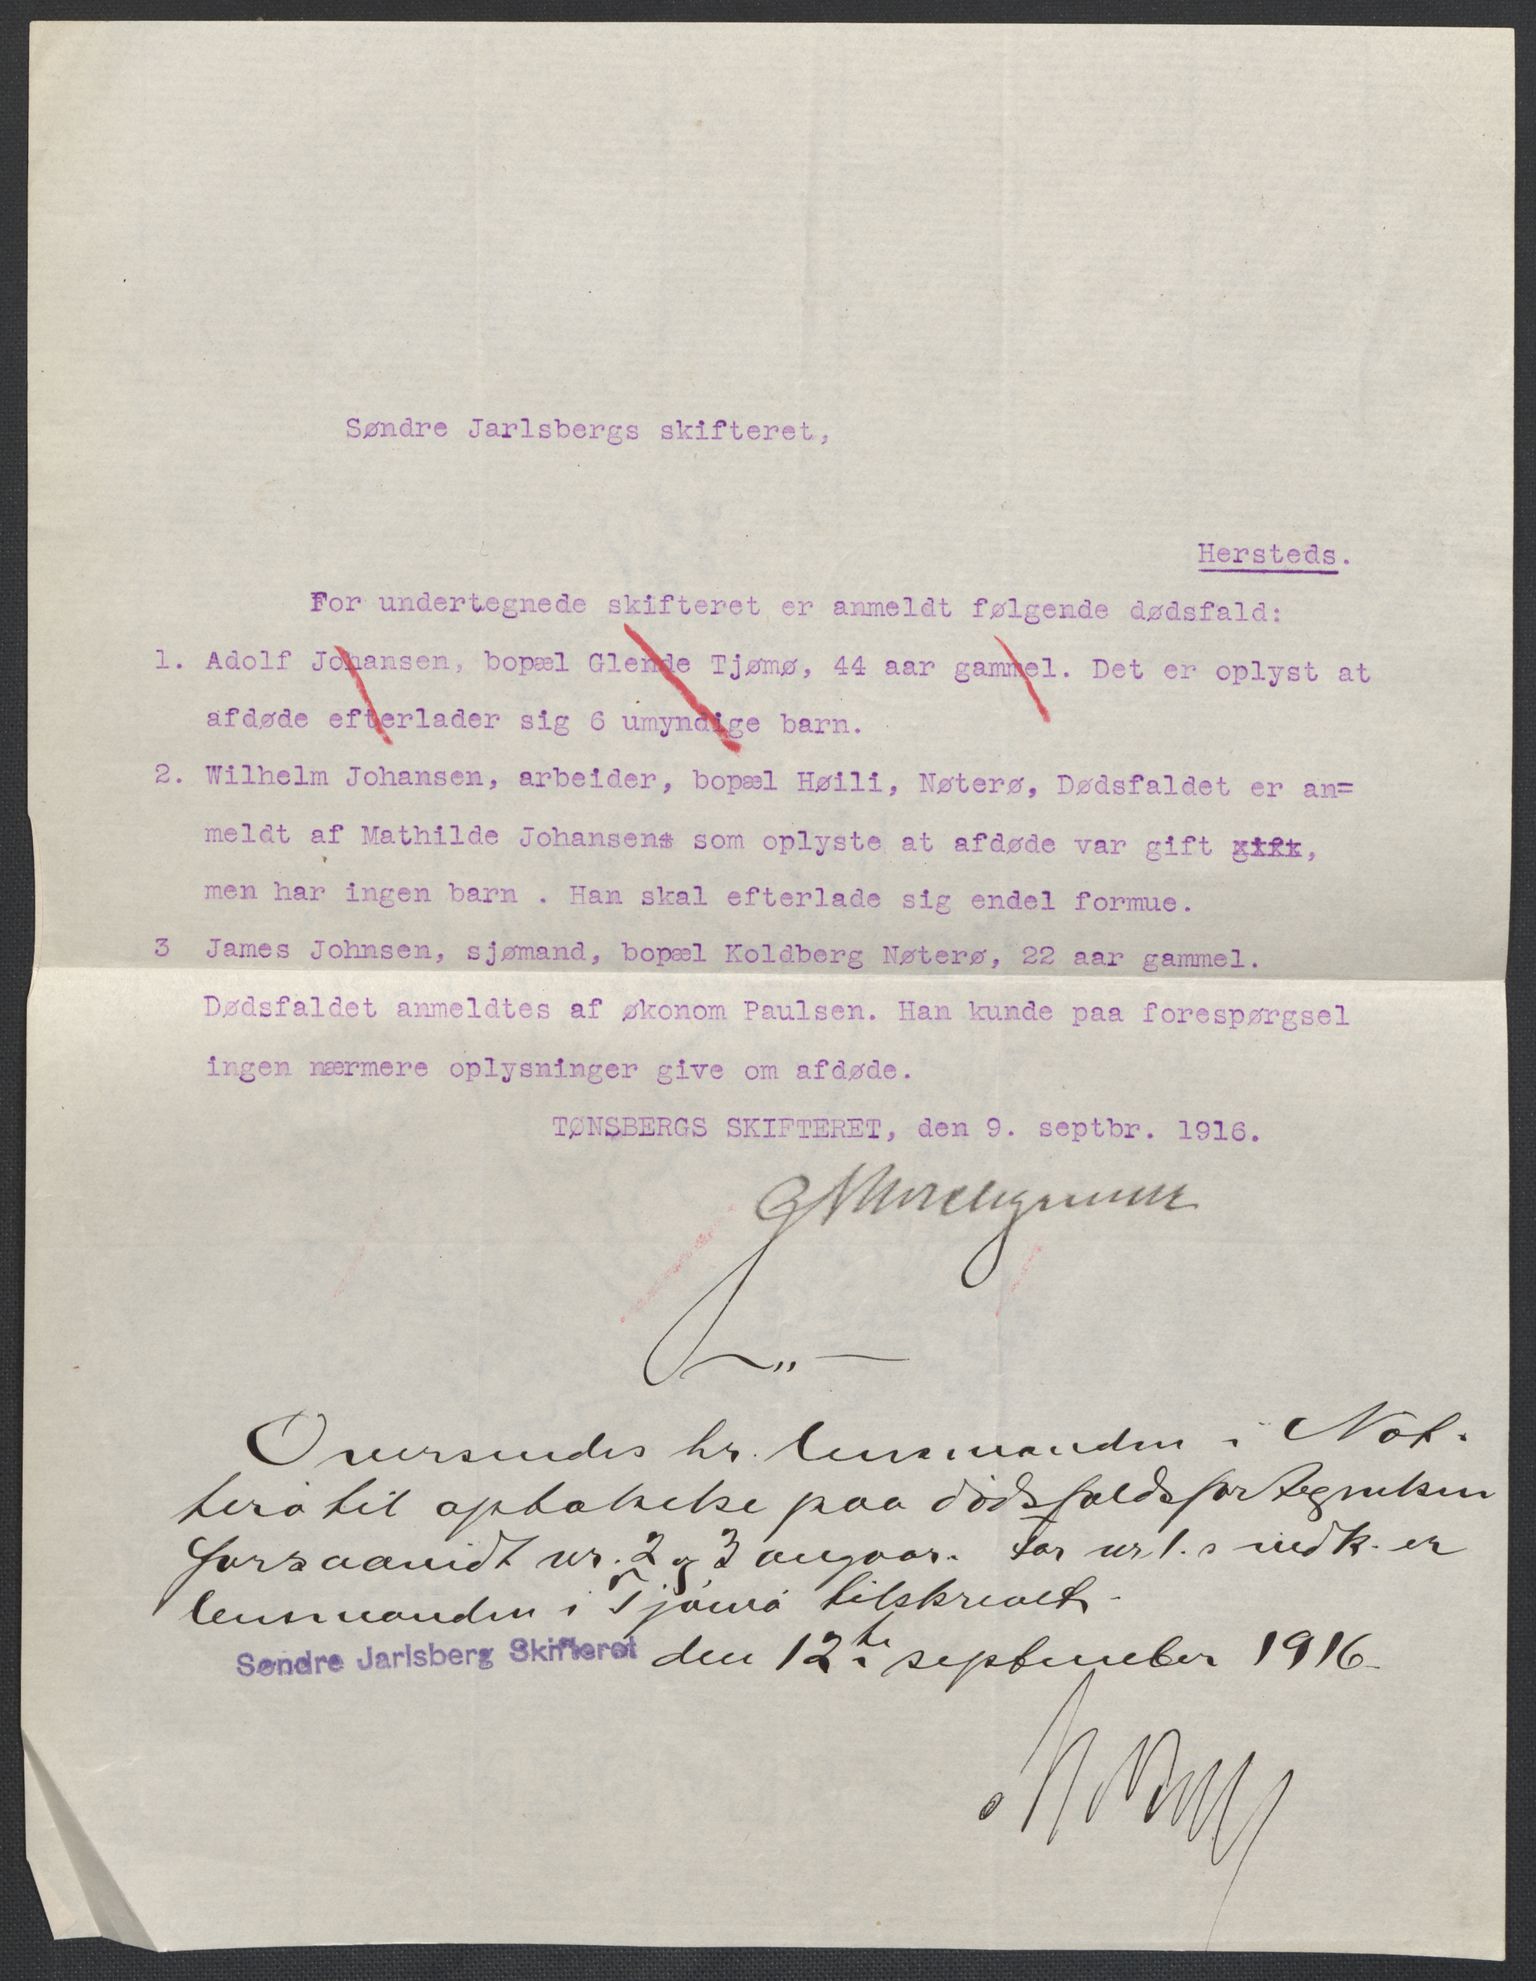 Søndre Jarlsbergs skifteret,
Hersteds.
For undertegnede skifteret er anmeldt følgende dødsfald:
1. Adolf Johansen, bopæl Glende Tjømø, 44 aar gammel. Det er oplyst at
afdøde efterlader sig 6 umyndige barn.
2. Wilhelm Johansen, arbeider, bopæl Høili, Nøterø, Dødsfaldet er an=
meldt af Mathilde Johansen som oplyste at afdøde var gift gift,
men har ingen barn . Han skal efterlade sig endel formue.
3 James Johnsen, sjømand, bopæl Koldberg Nøterø, 22 aar gammel.
Dødsfaldet anmeldtes af økonom Paulsen. Han kunde paa forespørgsel
ingen nærmere oplysninger give om afdøde.
TØNSBERGS SKIFTERET, den 9. septbr. 1916.
Oversendes hr. lensmanden i Nøt-
terø til optakelse paa dødsfaldsfortegnelsen
forsaavidt nr. 2 og 3 angaar. For nr. 1.s vedk. er
lensmanden i Tjømø tilskrevet.
Søndre Jarlsberg Skifteret den 12te september 1916